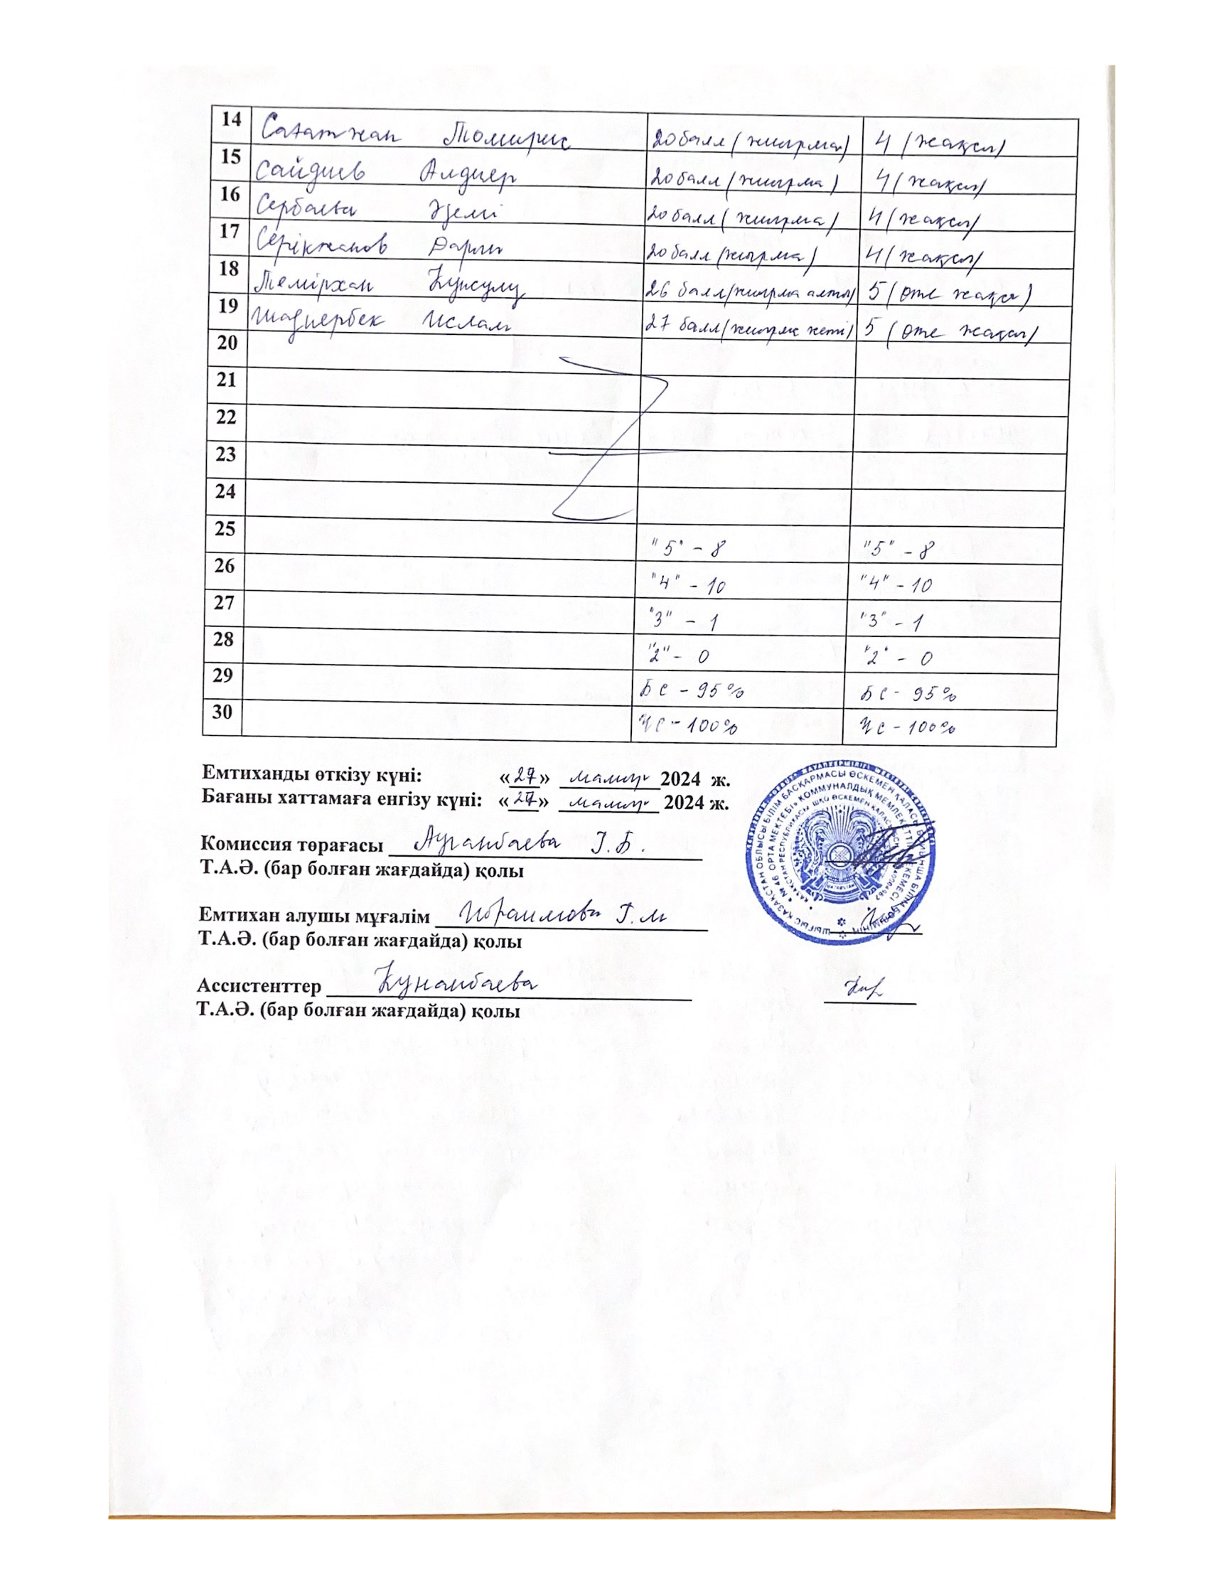 14 Сағатжан Томирис 20балл (жиырма) 4 (жақсы)
15 Сайдиев Алдиер 20балл (жиырма) 4 (жақсы)
16 Сербаева Әделі 20балл (жиырма) 4 (жақсы)
17 Серікжанов Дарын 20балл (жиырма) 4 (жақсы)
18 Темірхан Күнсұлу 26 балл (жиырма алты) 5 (өте жақсы)
19 Шадиербек Ислам 27 балл (жиырма жеті) 5 (өте жақсы)
20
21
22
23
24
25 "5" - 8 "5" - 8
26 "4" - 10 "4" - 10
27 "3" - 1 "3" - 1
28 "2" - 0 "2" - 0
29 БС - 95% БС - 95%
30 ҮС - 100% ҮС - 100%
Емтиханды өткізу күні: «27» мамыр 2024 ж.
Бағаны хаттамаға енгізу күні: «27» мамыр 2024 ж.
Комиссия төрағасы Ауганбаева Г.Б.
Т.А.Ә. (бар болған жағдайда) қолы
Емтихан алушы мұғалім Ибраимова Г.М
Т.А.Ә. (бар болған жағдайда) қолы
Ассистенттер Кунанбаева
Т.А.Ә. (бар болған жағдайда) қолы